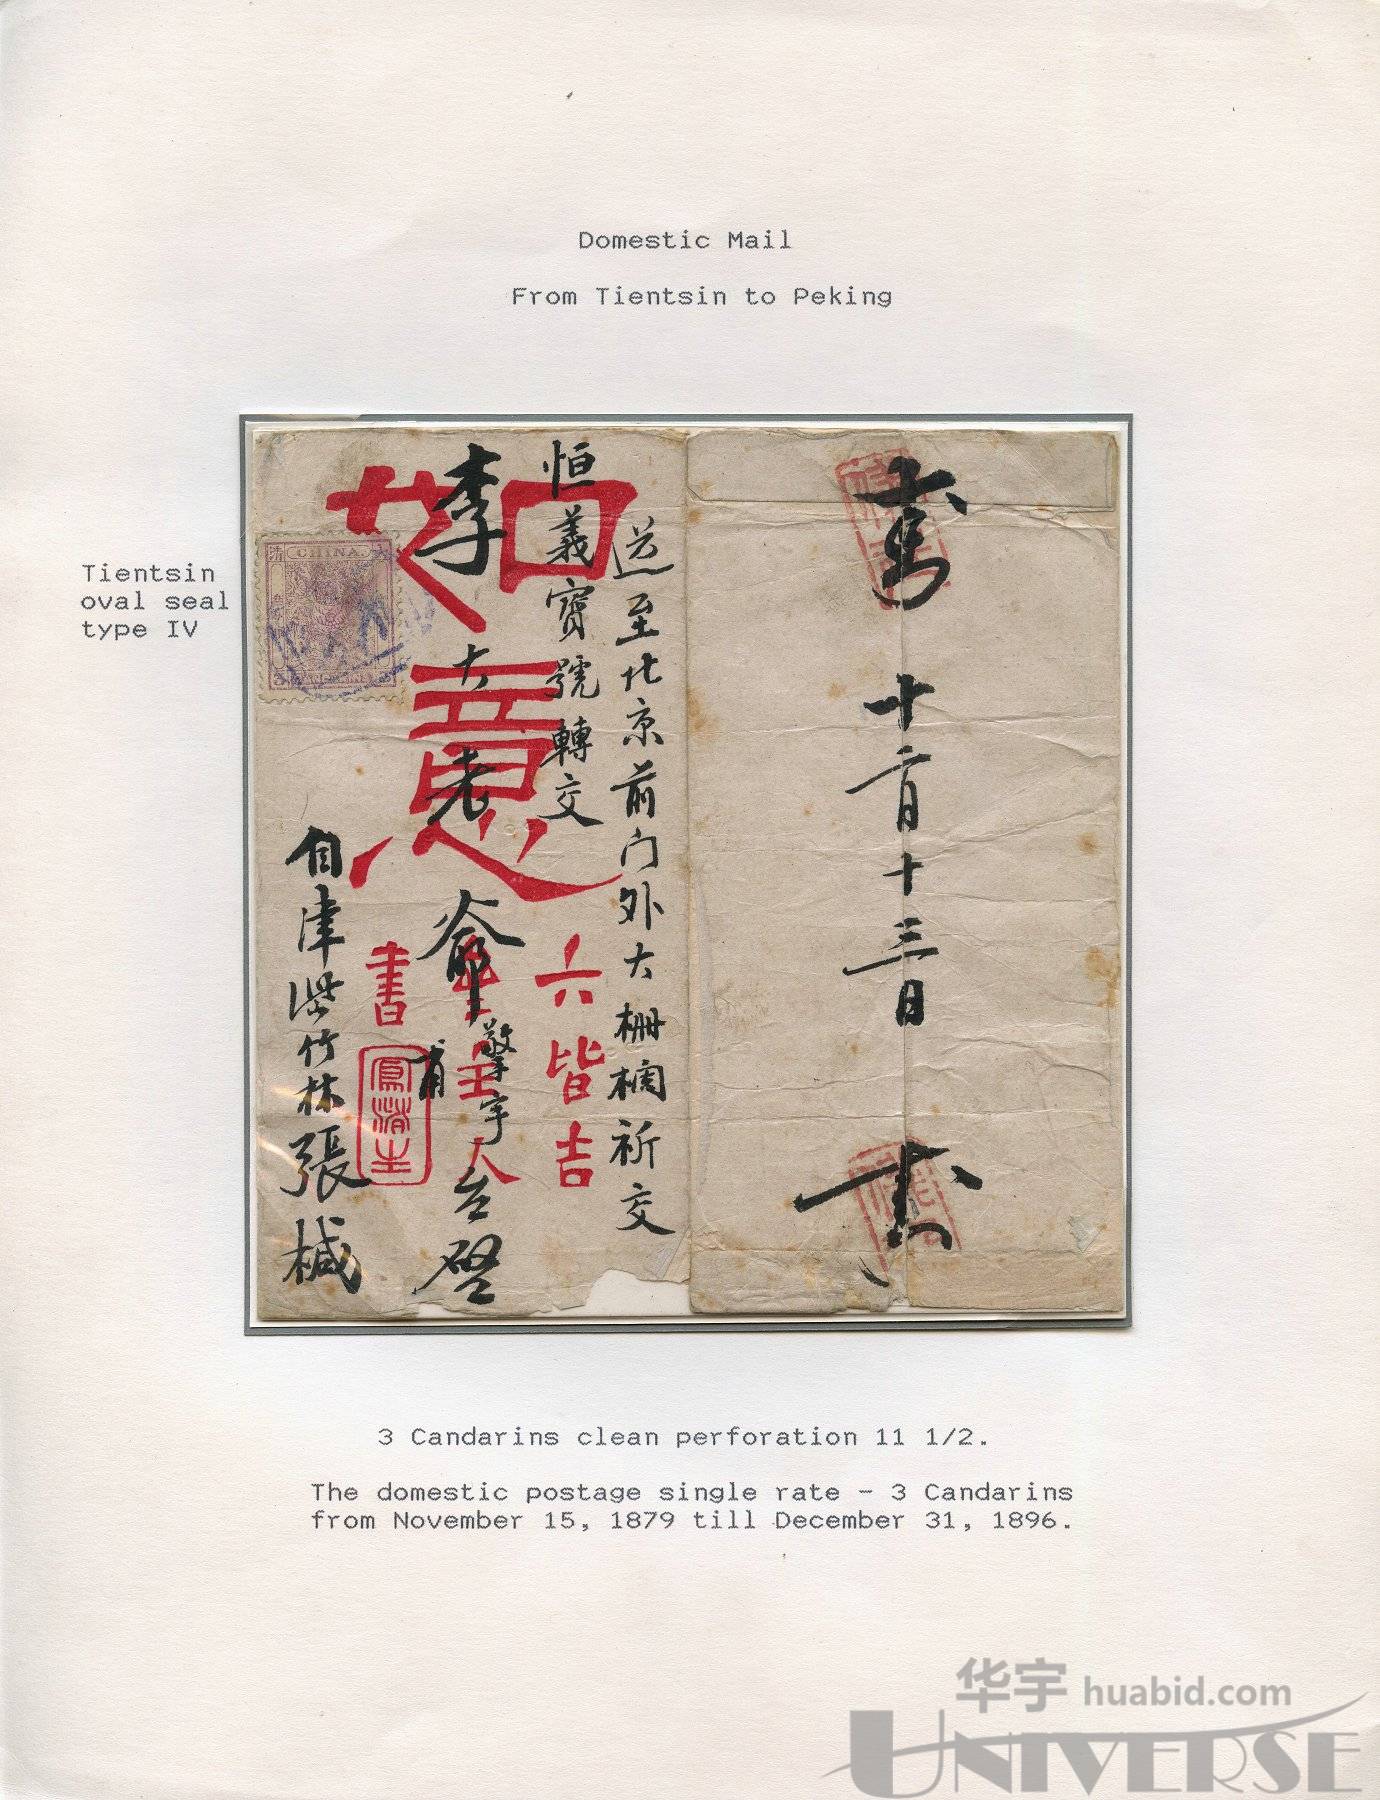 Domestic Mail
From Tientsin to Peking
Tientsin
oval seal
type IV
清
CHINA
送至北京前门外大栅欄祈交
恒義寶號轉交
李大老爺
擎宇
甫
台啓
自津紫竹林張椷
如意
六皆吉
主人
書
十二月十三日
3 Candarins clean perforation 11 1/2.
The domestic postage single rate - 3 Candarins
from November 15, 1879 till December 31, 1896.
华宇 huabid.com
UNIVERSE